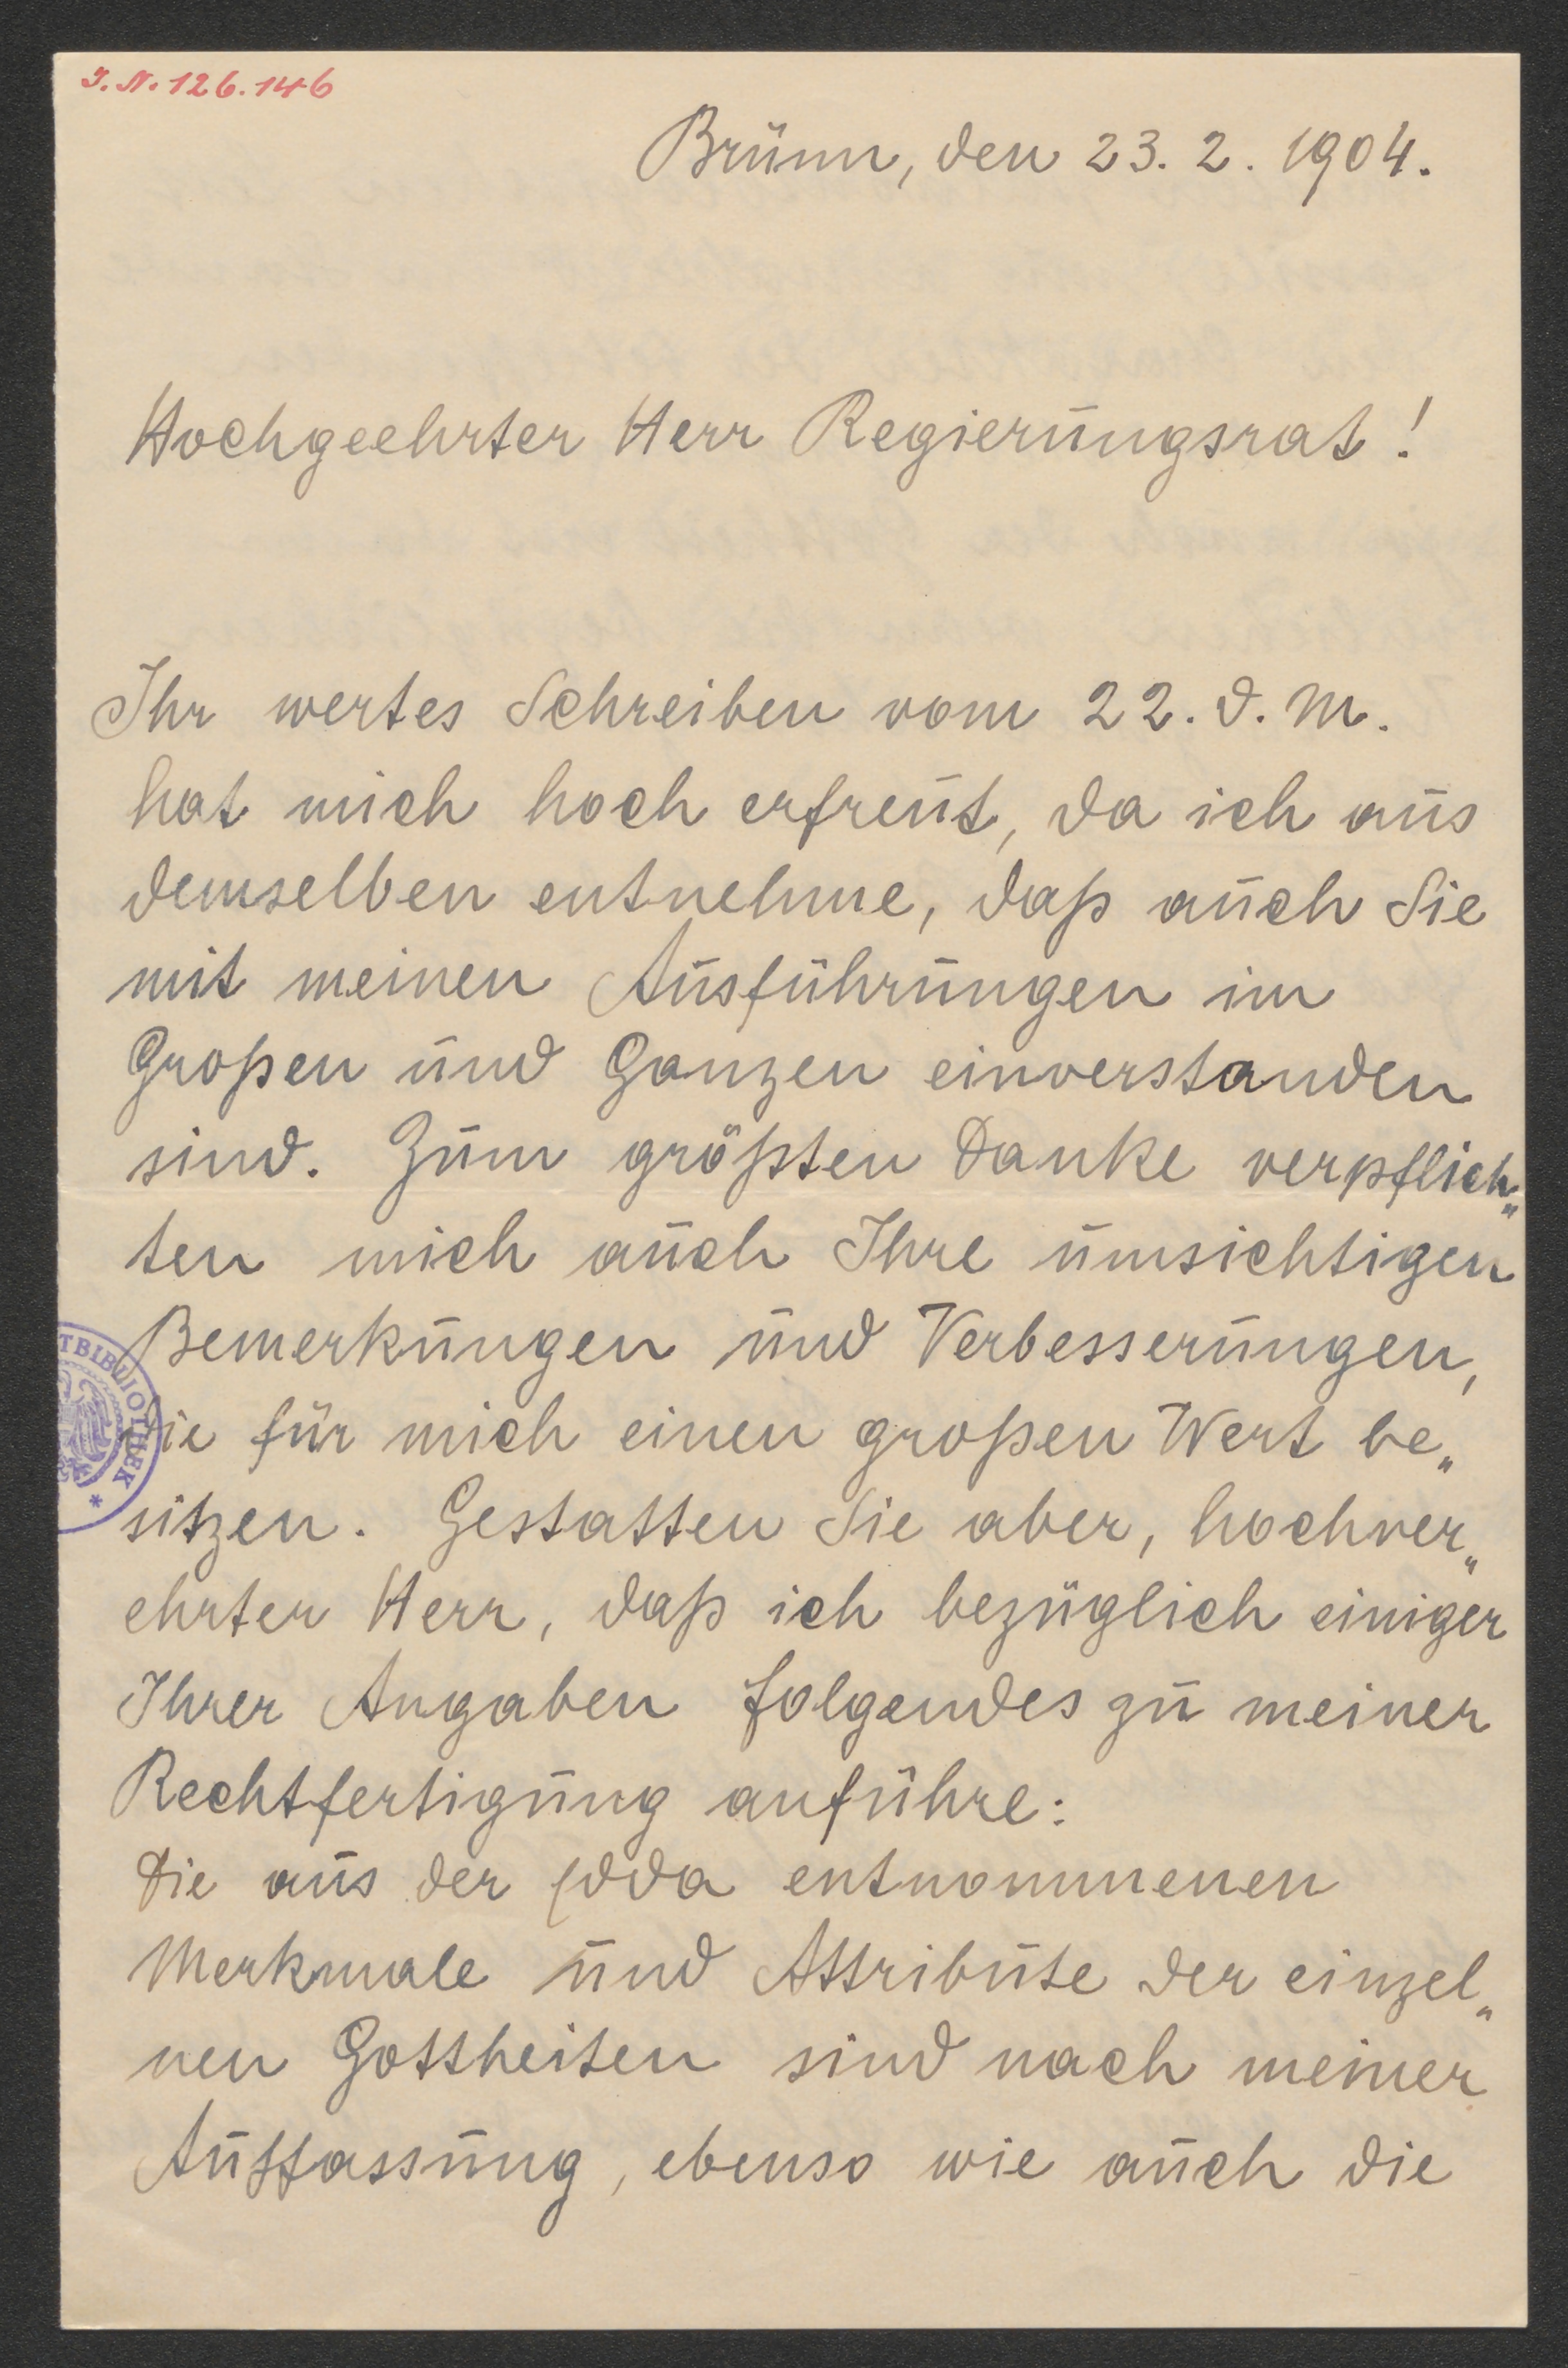 J.N. 126.146
Brünn, den 23. 2. 1904.
Hochgeehrter Herr Regierungsrat!
Ihr wertes Schreiben vom 22. d. M.
hat mich hoch erfreut, da ich aus
demselben entnehme, daß auch Sie
mit meinen Ausführungen im
Großen und Ganzen einverstanden
sind. Zum größten Danke verpflich„
ten mich auch Ihre umsichtigen
Bemerkungen und Verbesserungen,
die für mich einen großen Wert be„
sitzen. Gestatten Sie aber, hochver„
ehrter Herr, daß ich bezüglich einiger
Ihrer Angaben folgendes zu meiner
Rechtfertigung anführe:
Die aus der Edda entnommenen
Merkmale und Attribute der einzel„
nen Gottheiten sind nach meiner
Auffassung, ebenso wie auch die
TBIBLIOTHEK *